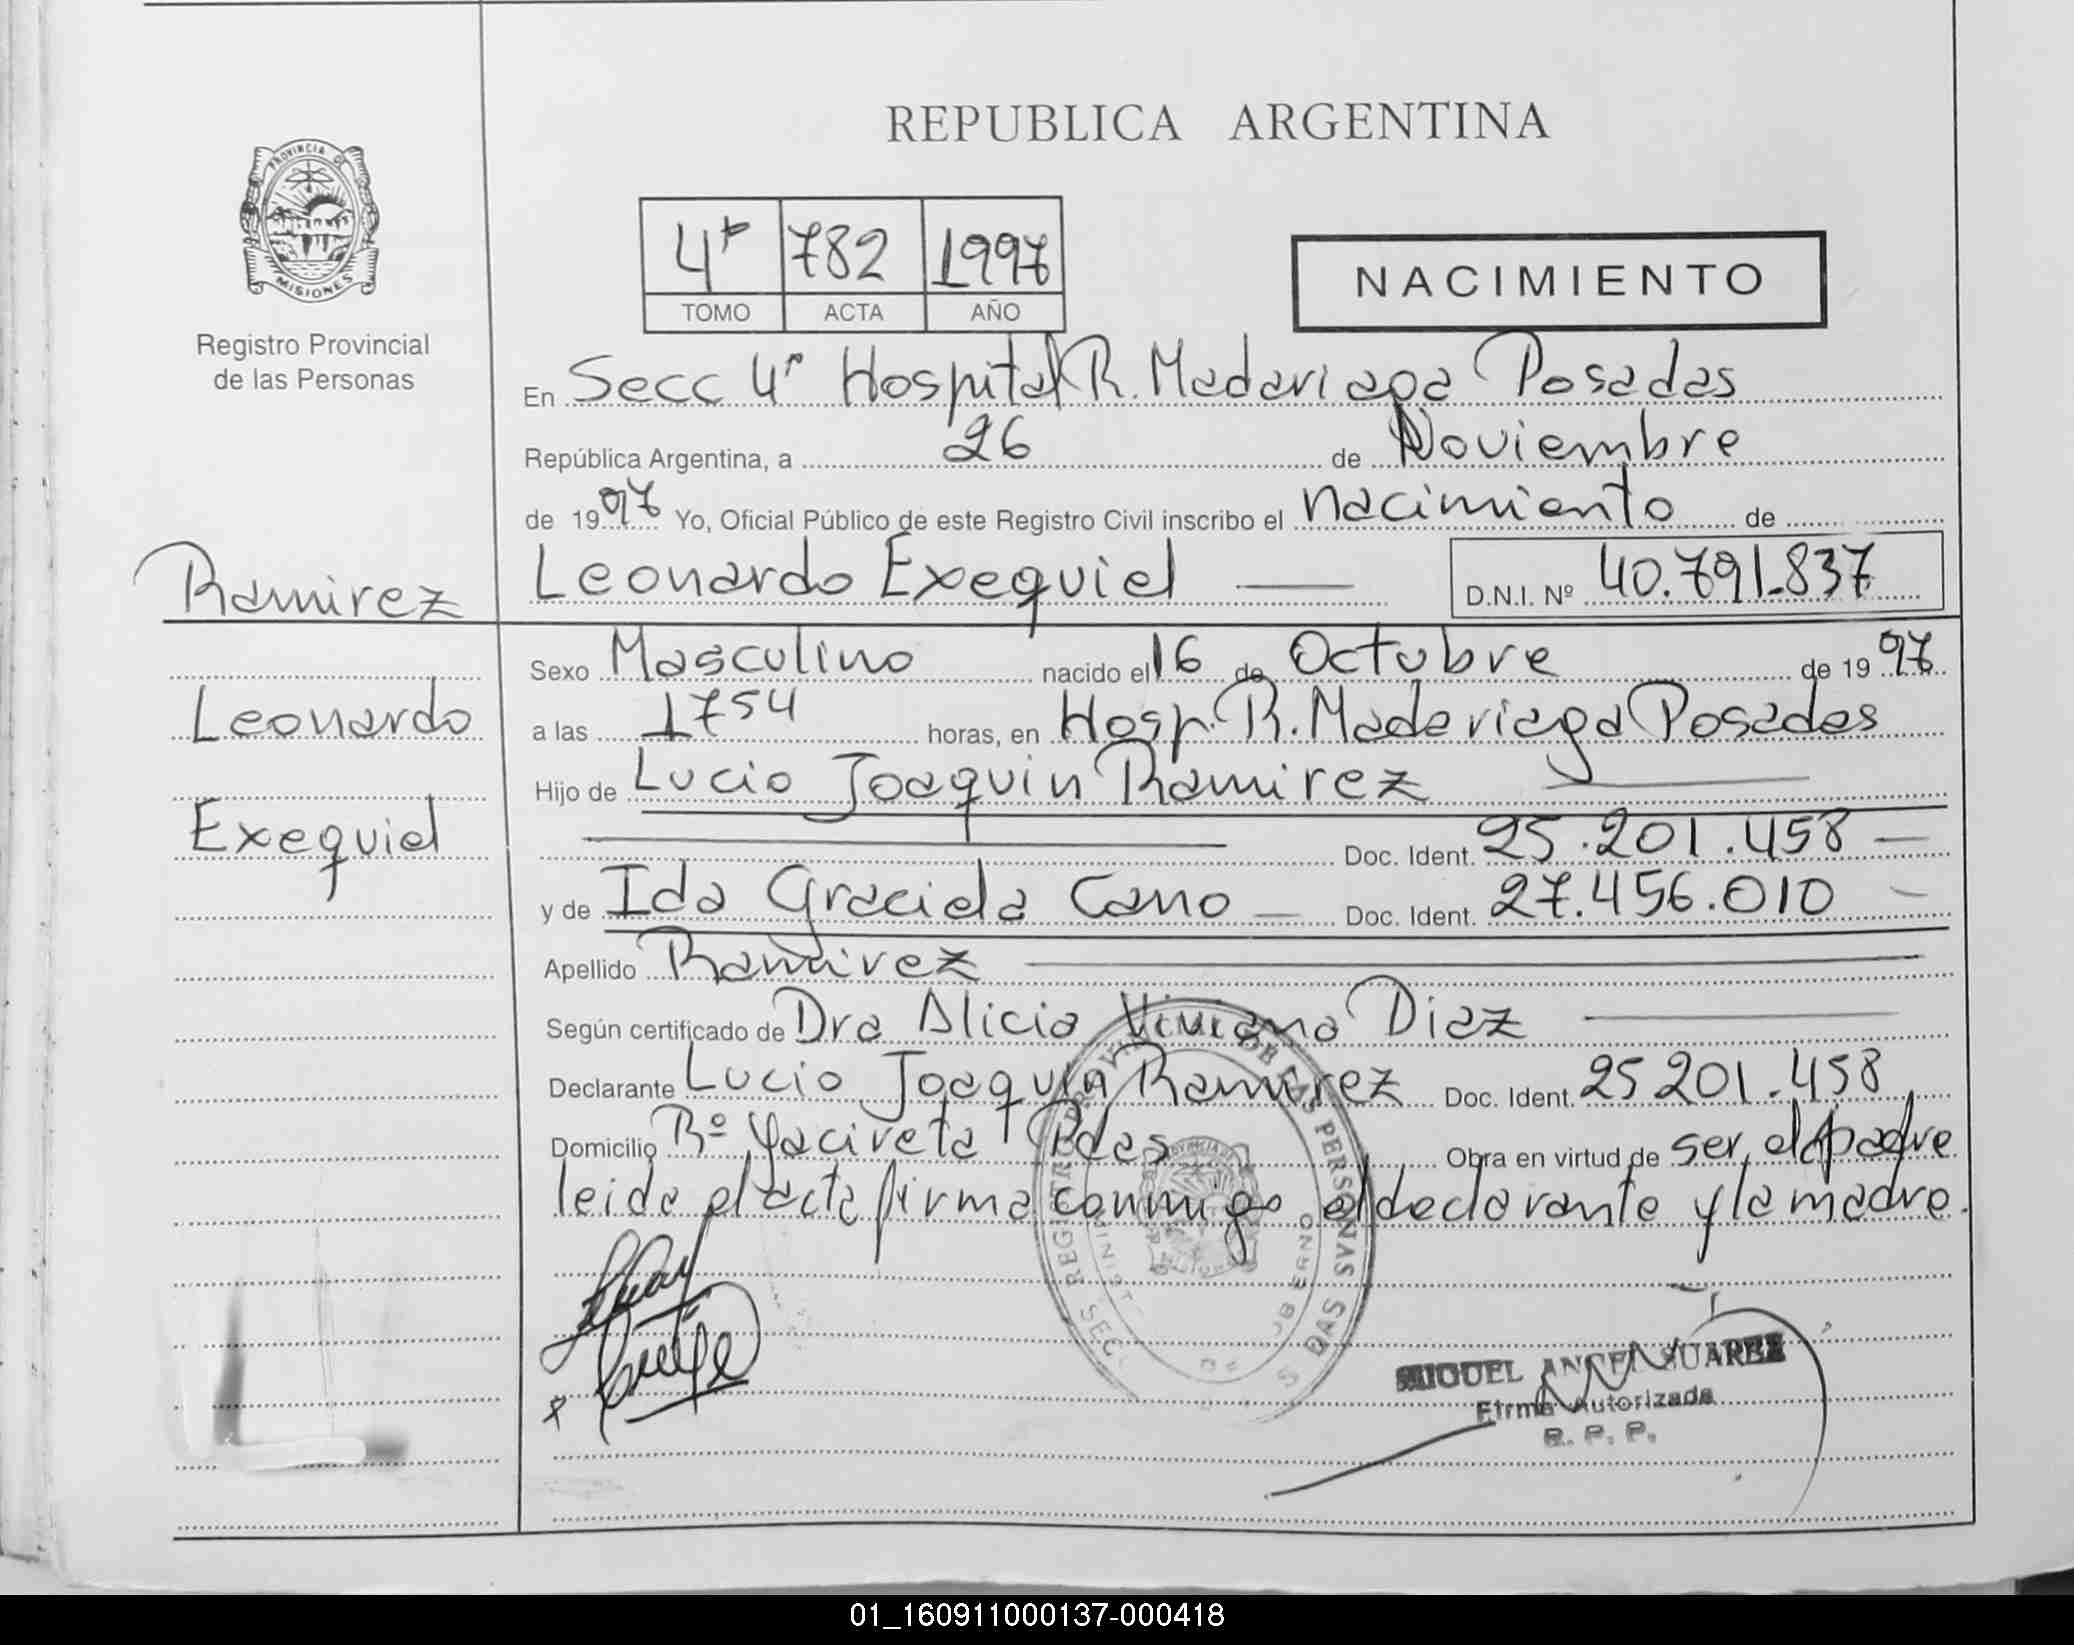 REPUBLICA ARGENTINA
PROVINCIA DE
MISIONES
Registro Provincial
de las Personas
4º 782 1997
TOMO ACTA AÑO
NACIMIENTO
En Secc 4º Hospital R. Madariaga Posadas
República Argentina, a 26 de Noviembre
de 1997 Yo, Oficial Público de este Registro Civil inscribo el nacimiento de
Leonardo Exequiel D.N.I. Nº 40.791.837
Ramirez
Leonardo
Exequiel
Sexo Masculino nacido el 16 de Octubre de 1997
a las 1754 horas, en Hosp. R. Madariaga Posadas
Hijo de Lucio Joaquin Ramirez
Doc. Ident. 25.201.458
y de Ida Graciela Cano Doc. Ident. 27.456.010
Apellido Ramirez
Según certificado de Dra Alicia Viviana Diaz
Declarante Lucio Joaquin Ramirez Doc. Ident. 25 201.458
Domicilio Bº Yacireta Pdas Obra en virtud de ser el padre
leida el acta firma conmigo el declarante y la madre.
MIGUEL ANGEL SUAREZ
Firma Autorizada
R. P. P.
01_160911000137-000418